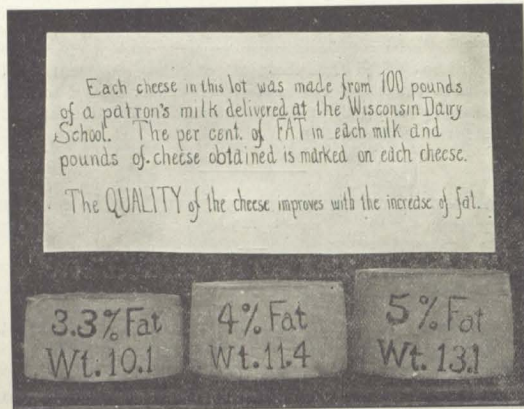 Each cheese in this lot was made from 100 pounds
of a patron's milk delivered at the Wisconsin Dairy
School. The per cent. of FAT in each milk and
pounds of cheese obtained is marked on each cheese.
The QUALITY of the cheese improves with the increase of fat.
3.3% Fat
Wt. 10.1
4% Fat
Wt. 11.4
5% Fat
Wt. 13.1